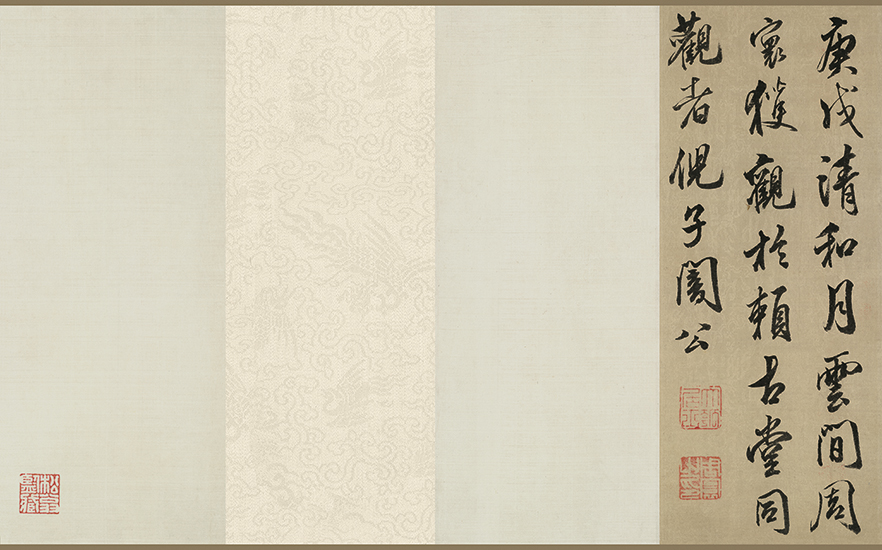 庚戌清和月雲間周
寰獲觀於賴古堂同
觀者倪子闇公